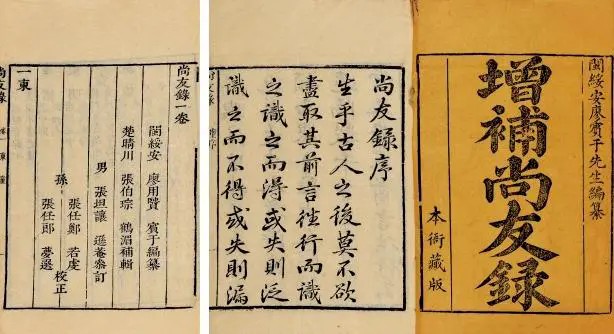 閩綏安廖賓于先生編纂
增補尚友錄
本衙藏版
尚友錄序
生乎古人之後莫不欲
盡取其前言往行而識
之識之而得或失則泛
識之而不得或失則漏
尚友錄一卷
閩綏安 廖用賢 賓于編纂
楚晴川 張伯琮 鶴湄補輯
男 張坦讓 遜菴叅訂
張任鄭 若虔
孫 校正
張任郎 夢選
一東
尚友錄